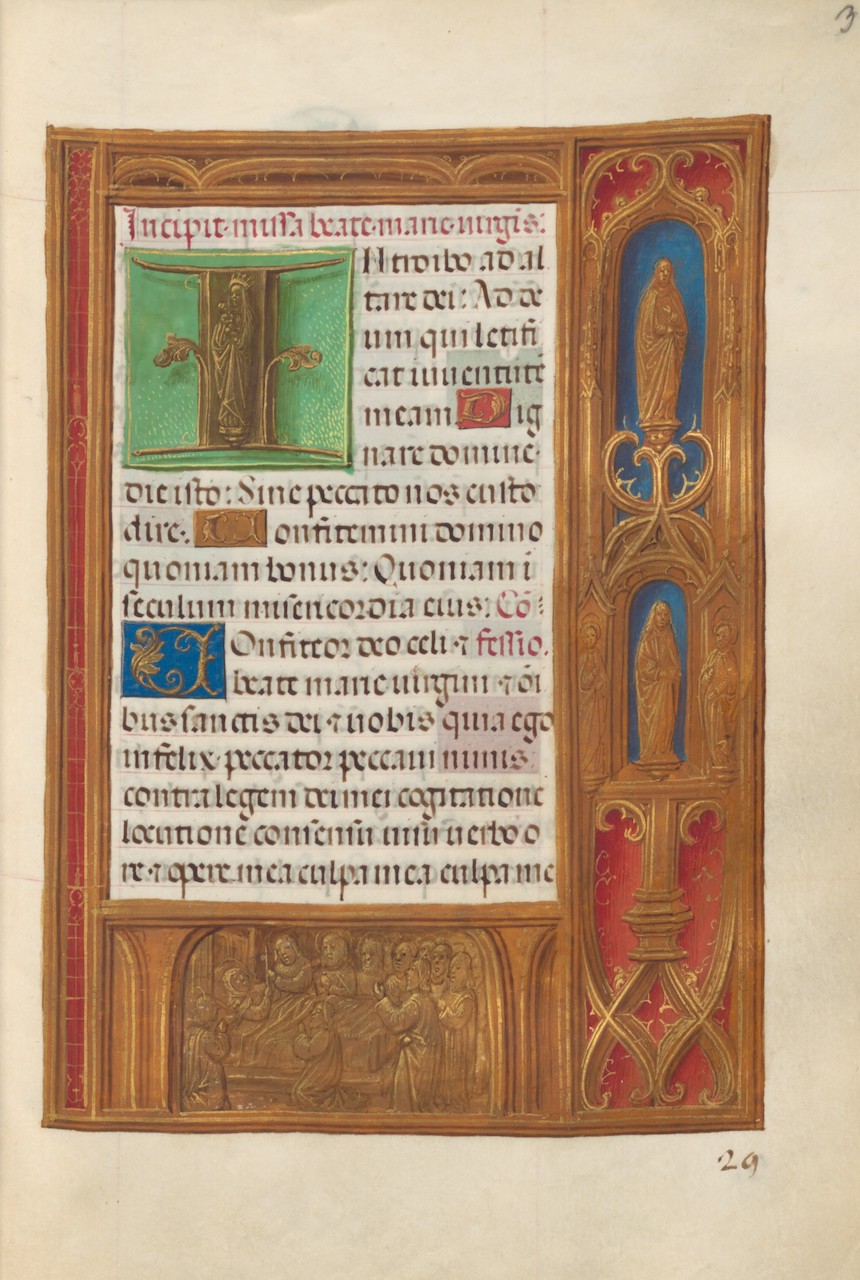 3
Incipit missa beate marie virgis:
INtroibo ad al
tare dei: Ad de
um qui letifi
cat iuuentutē
meam Dig
nare domine
die isto: Sine peccato nos custo
dire. Confitemini domino
quoniam bonus: Quoniam i
seculum misericordia eius: Cō
COnfiteor deo celi ⁊ fessio.
beate marie uirgini ⁊ oī
bus sanctis dei ⁊ uobis quia ego
infelix peccator peccaui nimis
contra legem dei mei cogitatione
locutione consensu uisu uerbo o
re ⁊ opere mea culpa mea culpa me
29